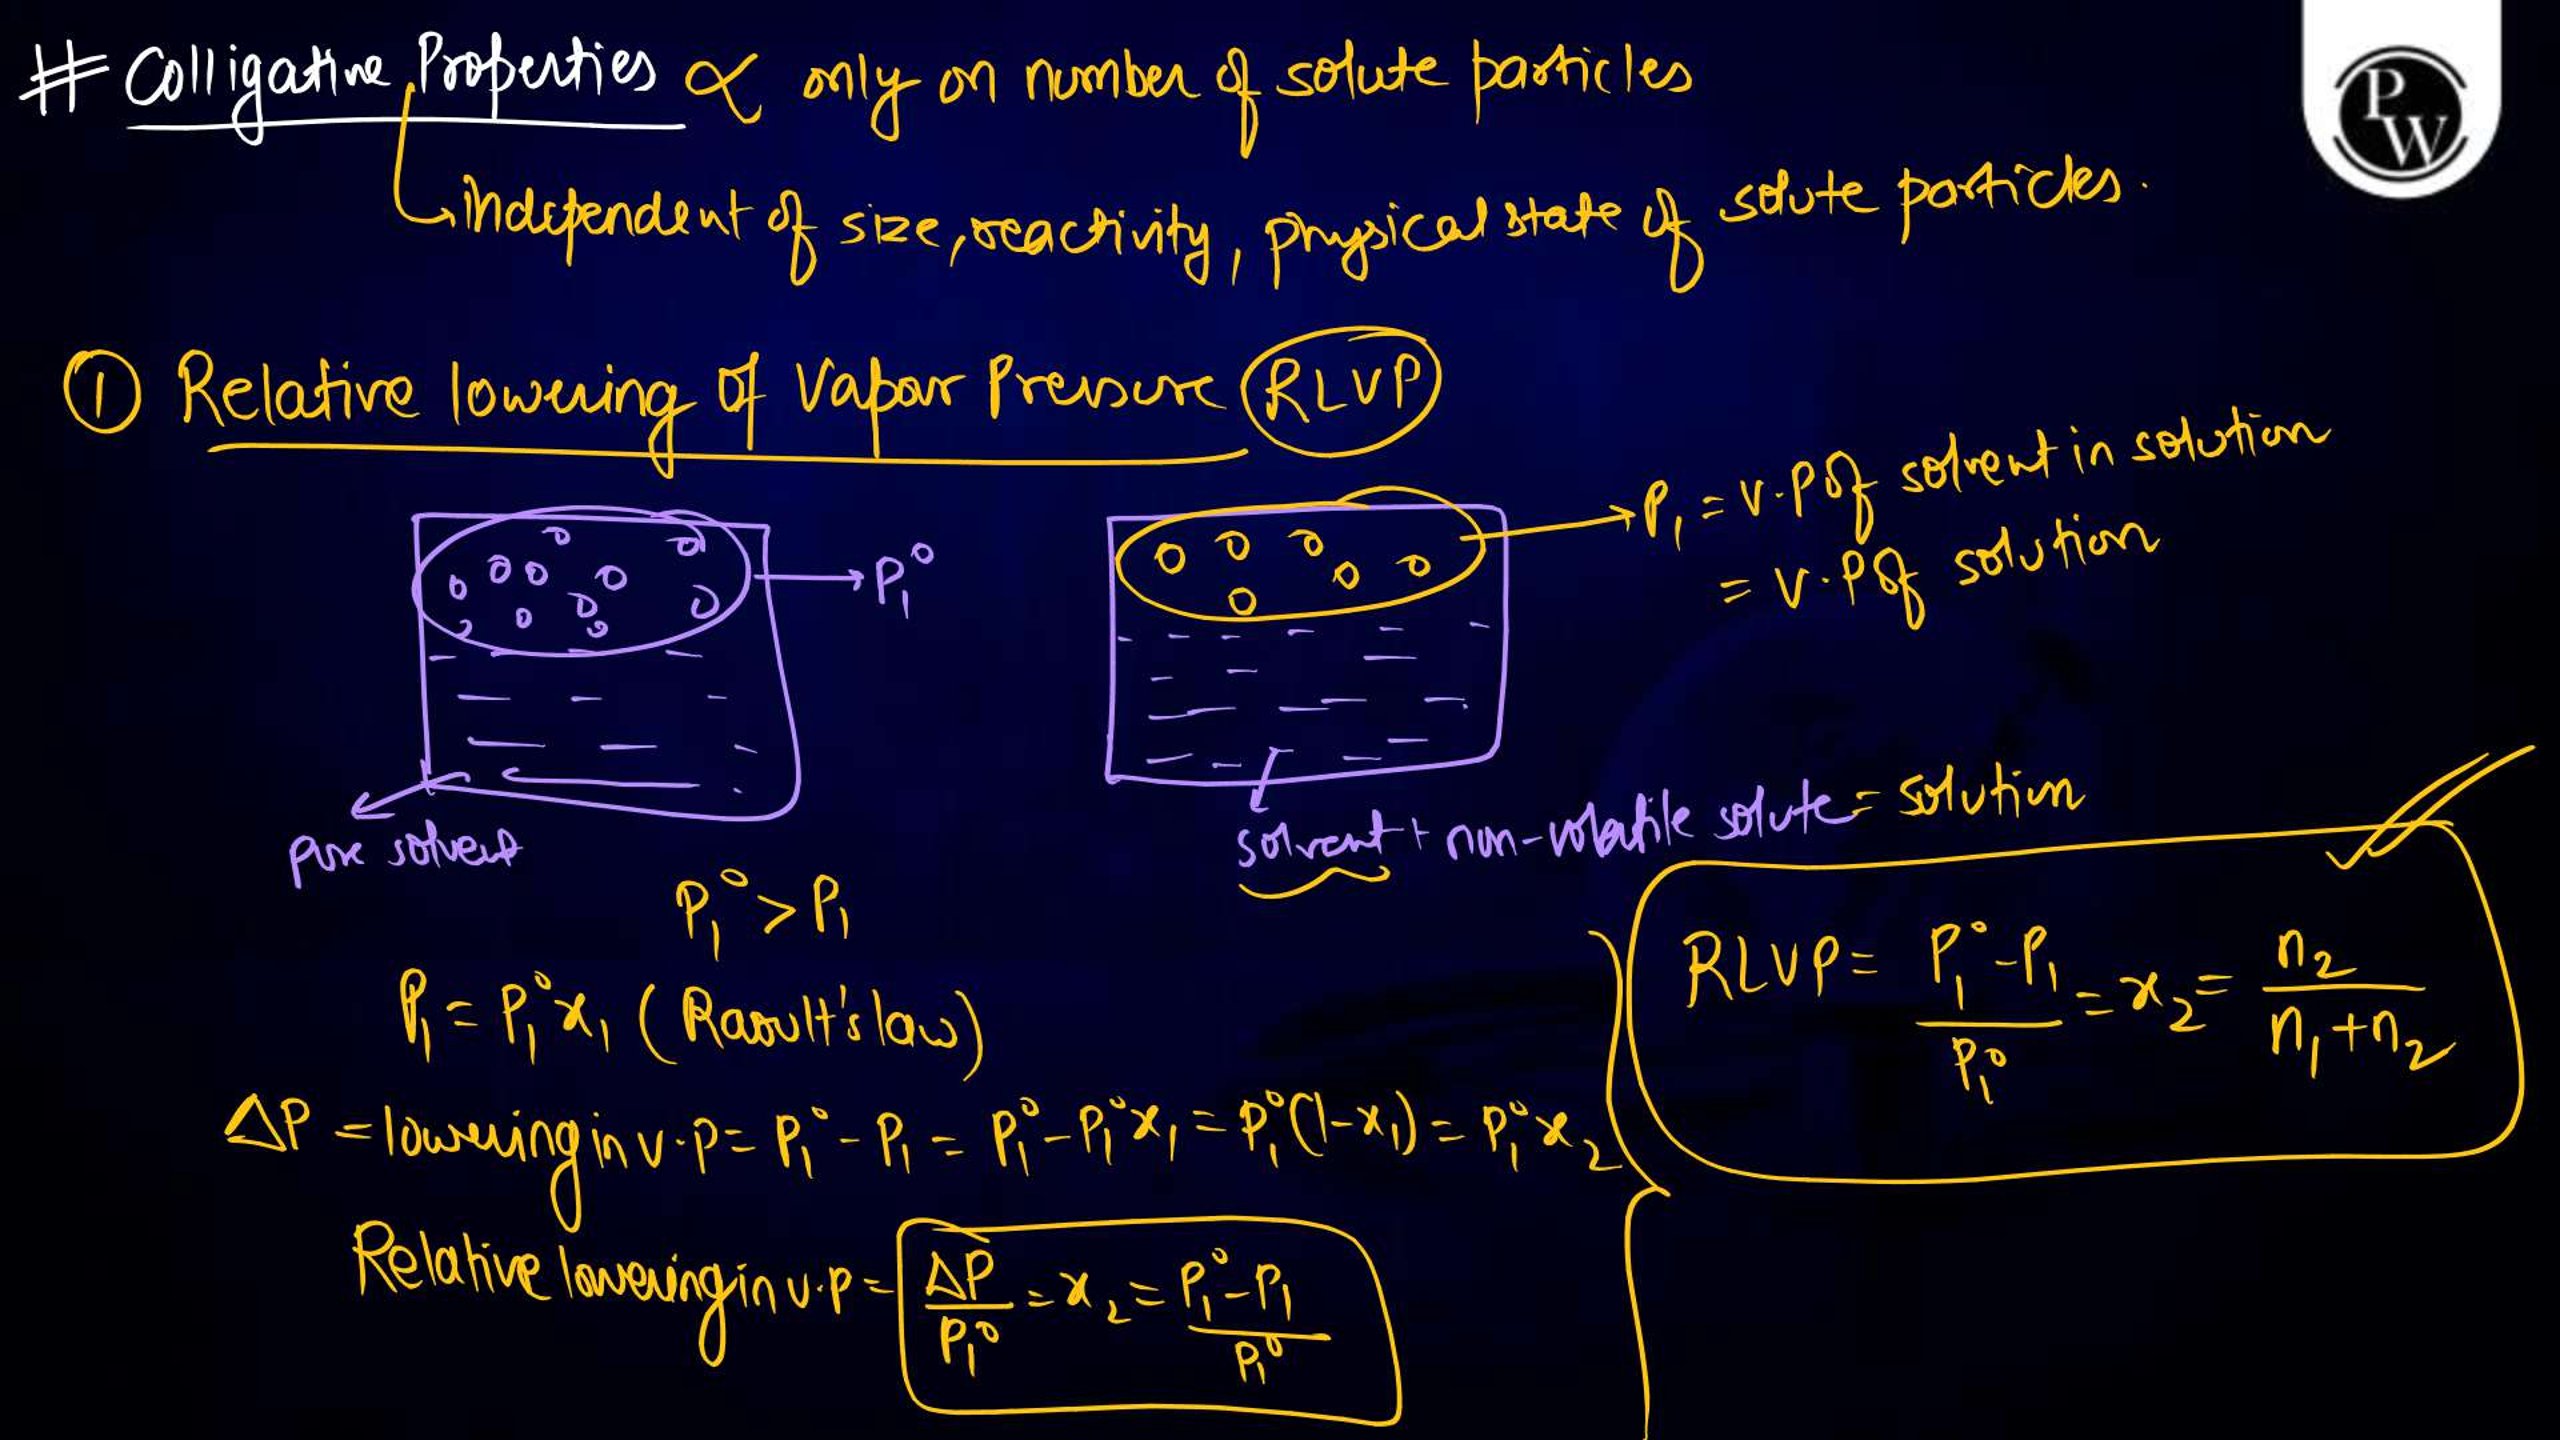 # Colligative Properties ∝ only on number of solute particles
PW
↳ independent of size, reactivity, physical state of solute particles.
① Relative lowering of Vapour Pressure (RLVP)
P₁ = V.P of solvent in solution
= V.P of solution
P₁°
pure solvent
solvent + non-volatile solute = solution
P₁° > P₁
P₁ = P₁°x₁ (Raoult's law)
RLVP = (P₁° - P₁)/P₁° = x₂ = n₂/(n₁+n₂)
ΔP = lowering in v.p = P₁° - P₁ = P₁° - P₁°x₁ = P₁°(1-x₁) = P₁°x₂
Relative lowering in v.p = ΔP/P₁° = x₂ = (P₁° - P₁)/P₁°